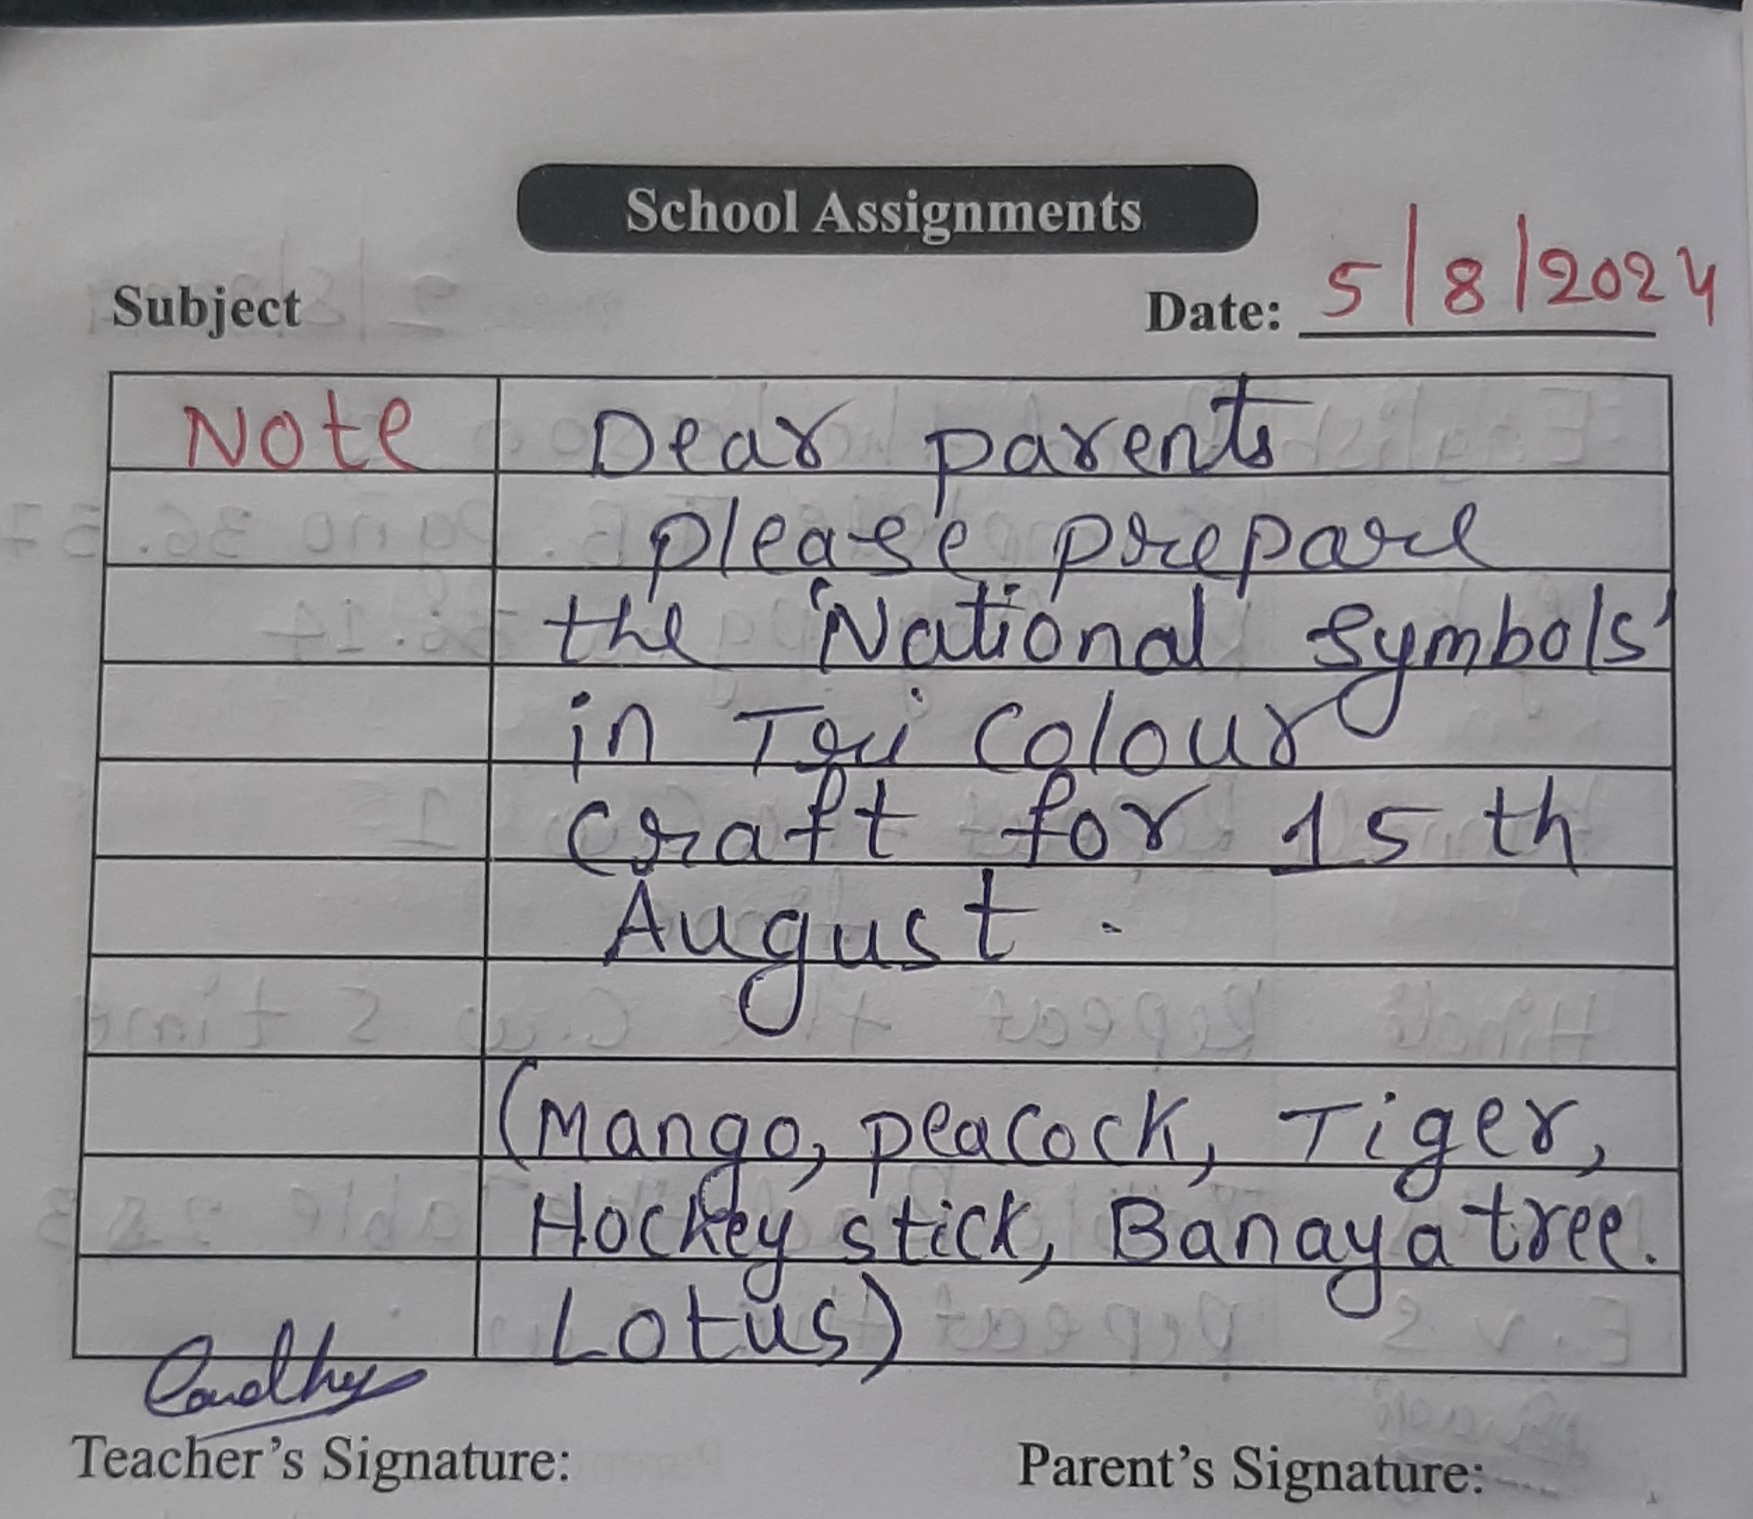 School Assignments
Subject Date: 5/8/2024
Note Dear parents
please prepare
the 'National Symbols'
in Tri Colour
craft for 15 th
August.
(Mango, peacock, Tiger,
Hockey stick, Banaya tree.
Lotus)
Teacher's Signature: Parent's Signature: